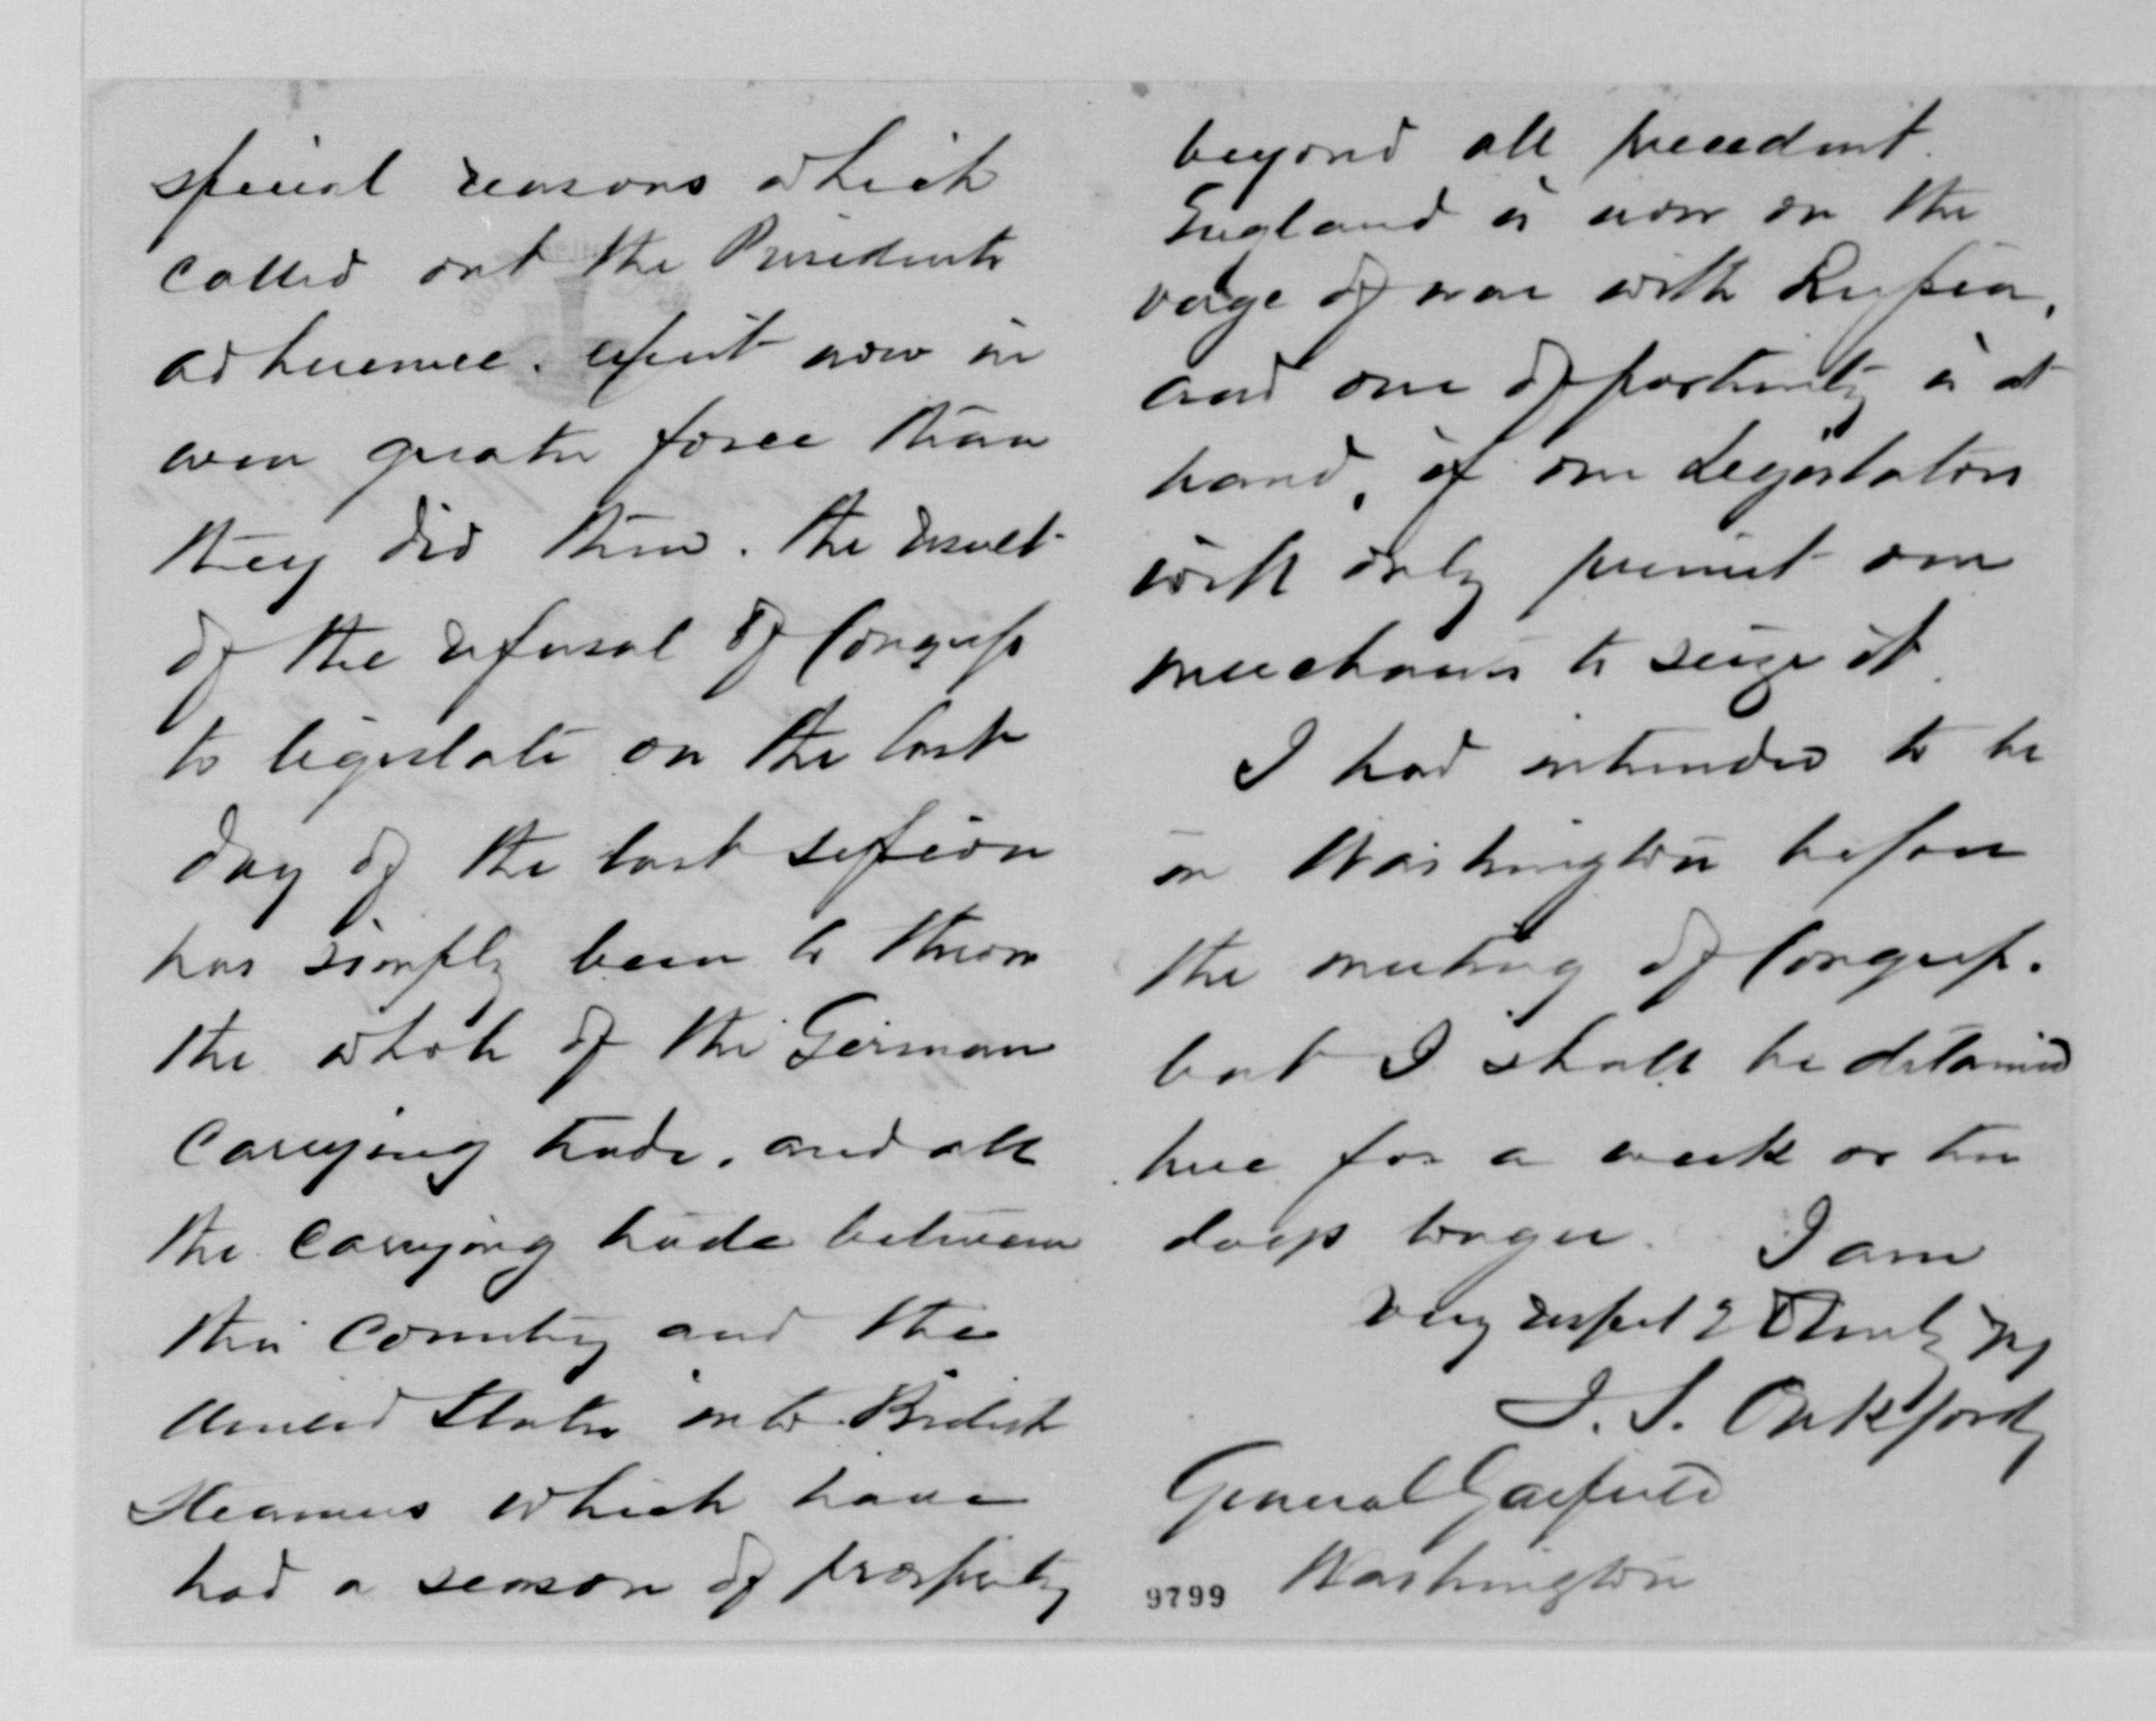 special reasons which
called out the Presidents
adherence. exist now in
even greater force than
they did then. the result
of the refusal of Congress
to legislate on the last
day of the last session
has simply been to throw
the whole of the German
carrying trade. and all
the carrying trade between
this Country and the
United States into British
Steamers which have
had a season of prosperity
beyond all precedent.
England is now on the
verge of war with Russia,
and our opportunity is at
hand, if our Legislators
will only permit our
merchants to seize it.
I had intended to be
in Washington before
the meeting of Congress.
but I shall be detained
here for a week or ten
days longer. I am
Very respect &
J. S. Oakford
General Garfield
Washington
9799